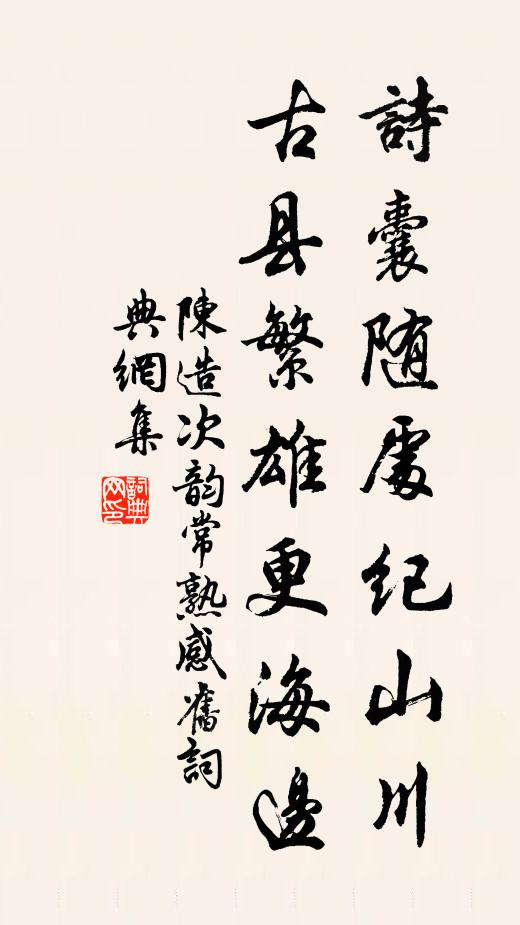 詩囊随處纪山川
古县繁雄更海邊
陳造次韵常熟感舊詞
典網集
詞典
网印